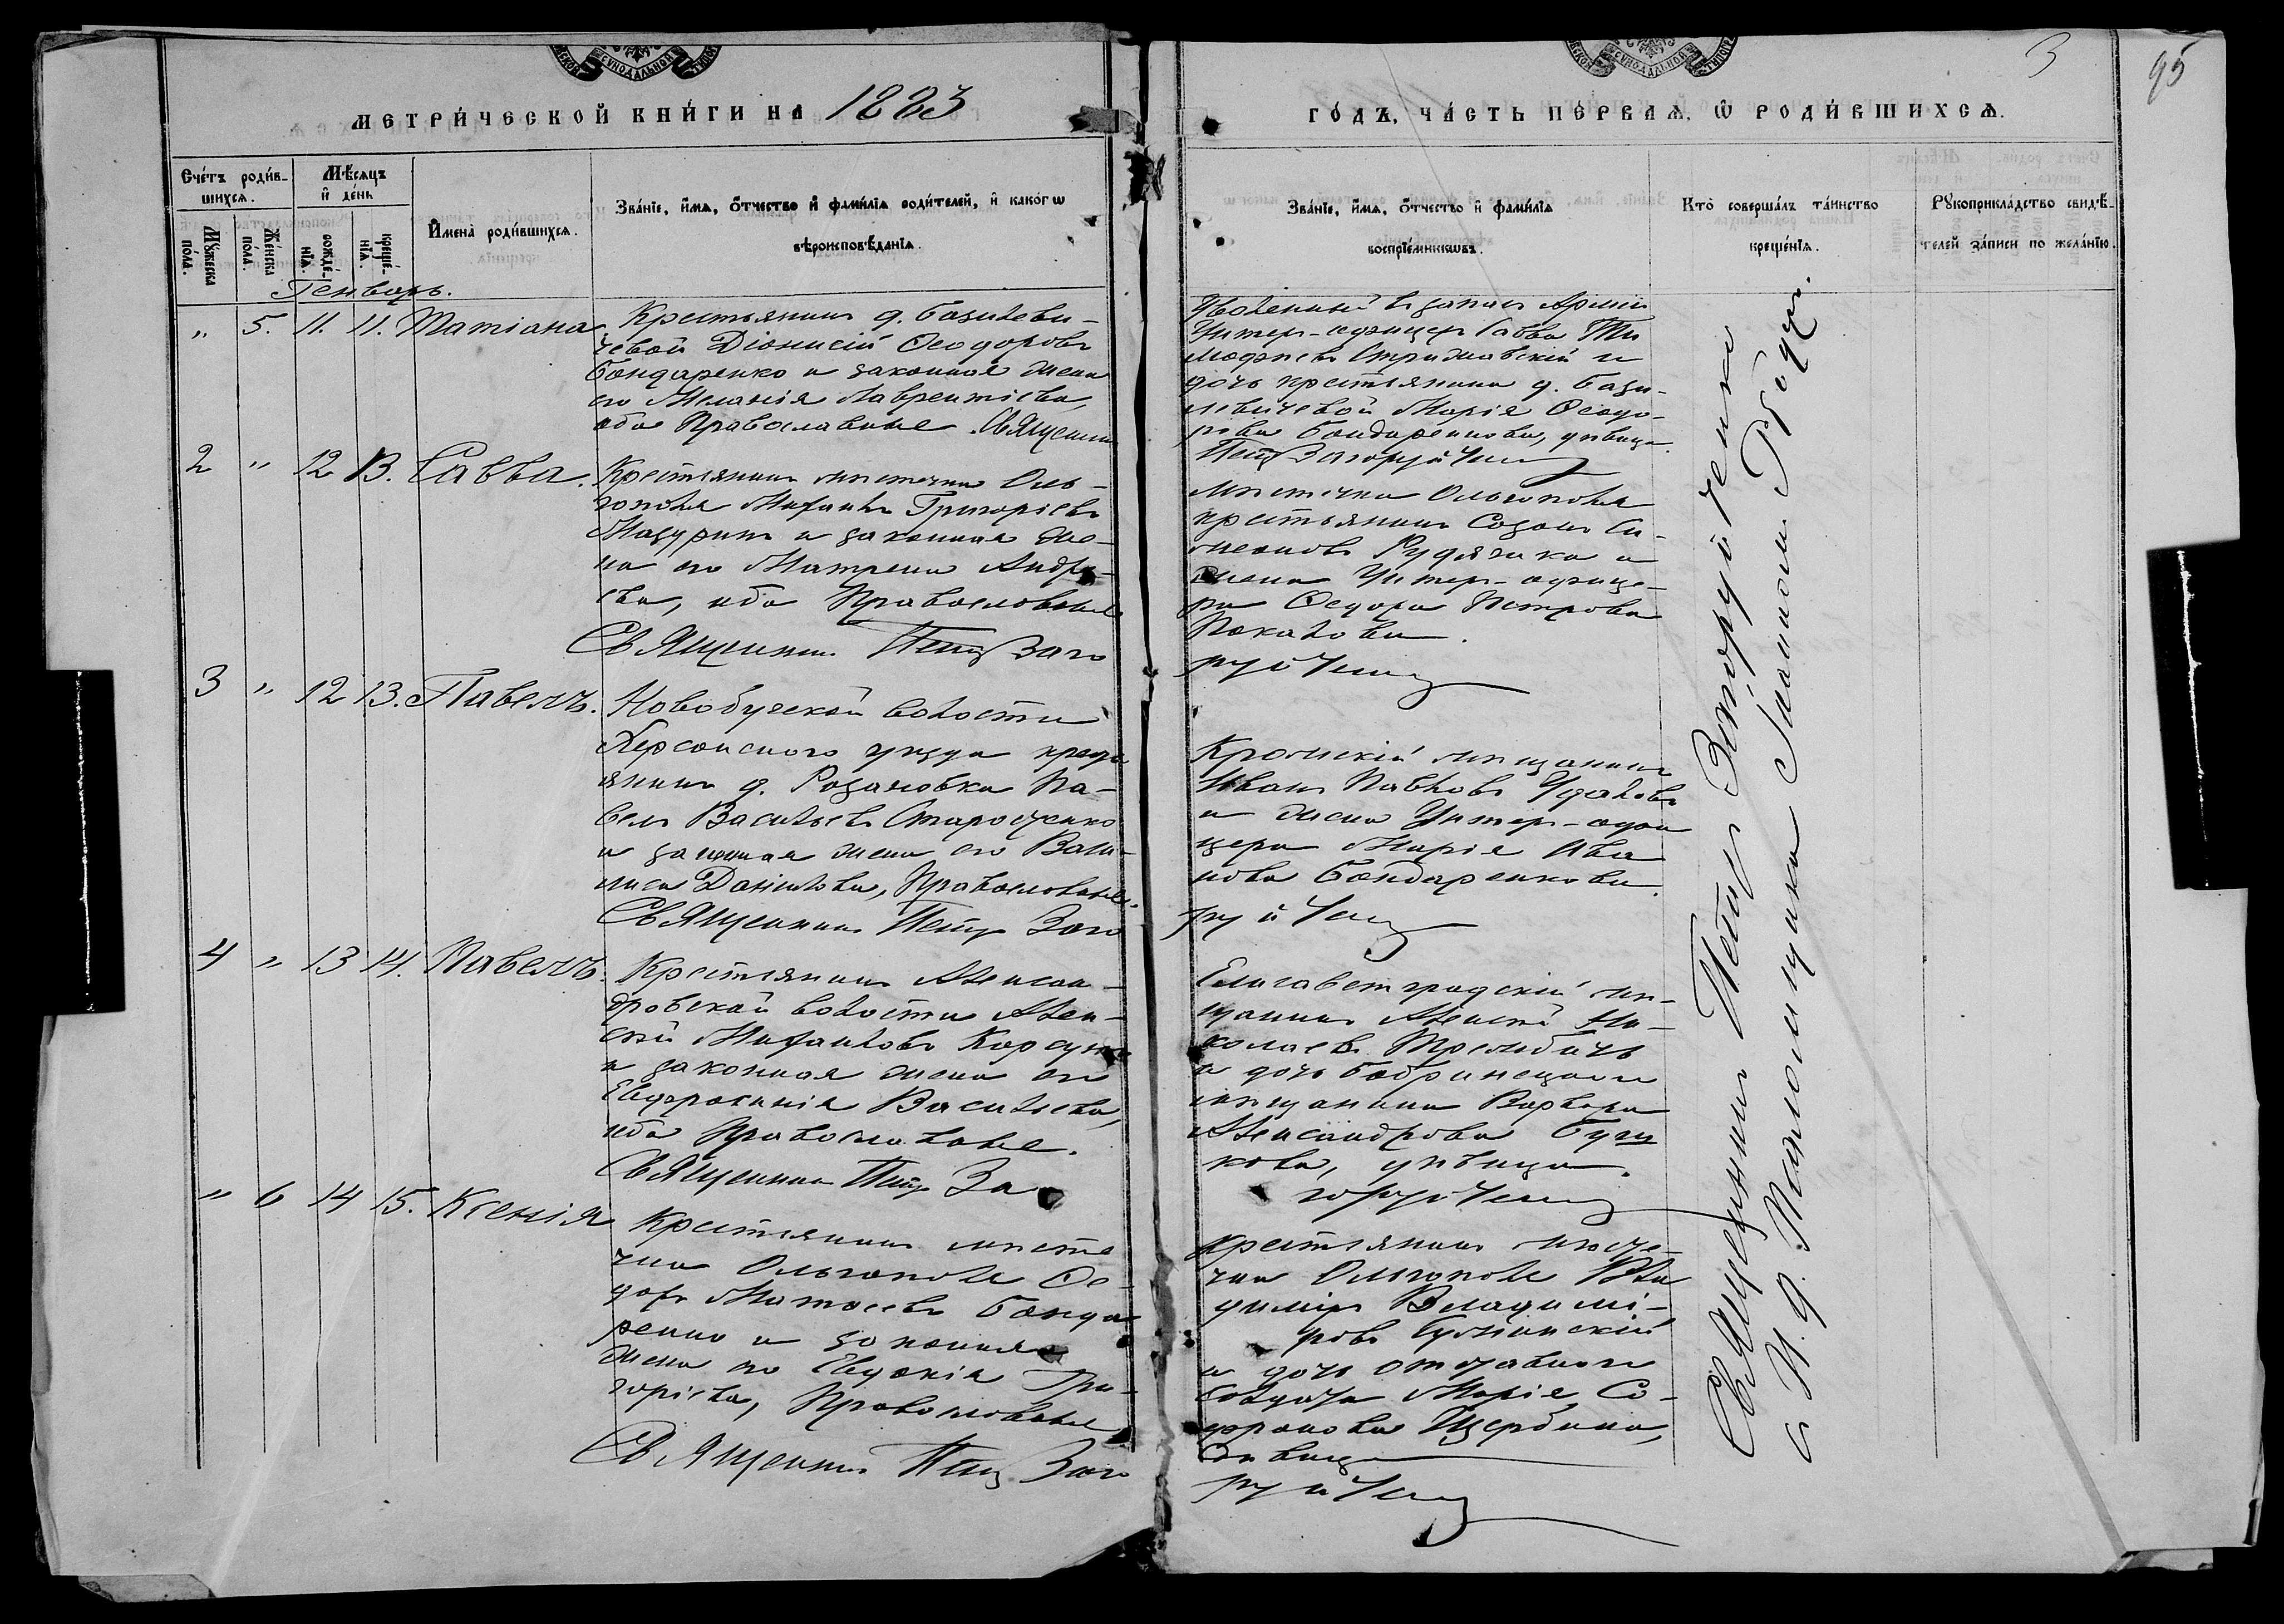 3
95
МЕТРИ́ЧЕСКОЙ КНИ́ГИ НА 1883
ГО́ДЪ, ЧА́СТЬ ПЕ́РВАѦ, Ѡ РОДИ́ВШИХСѦ.
Сче́тъ роди́в-
шихсѧ.
Мꙋ́жеска пола.
Же́нска по́ла.
Мѣ́сѧцъ
и҆ де́нь
рожде́-
нїѧ.
креще́-
нїѧ.
И҆мена̀ роди́вшихсѧ.
Зва́нїе, и҆́мѧ, ѻ҆́тчество и҆ фами́лїѧ роди́телей, и҆ како́гѡ
вѣроисповѣ́данїѧ.
Зва́нїе, и҆́мѧ, ѻ҆́тчество и҆ фами́лїѧ
воспрїе́мникѡвъ.
Кто̀ соверша́лъ та́инство
креще́нїѧ.
Рꙋкоприкла́дство свидѣ́-
телей за́писи по жела́нїю.
Генварь.
" 5. 11. 11. Татіана.
Крестьянинъ д. Базилеви-
чевой Діонисій Ѳеодоровъ
Бондаренко и законная жена
его Меланія Лаврентіева,
оба Православные. Священник
Уволенный въ запасъ Арміи
Унтер-офицеръ Савва Ти
мофеевъ Стрижавскій и
дочь крестьянина д. Бази-
левичевой Марія Ѳеодо-
рова Бондаренкова, девица.
Петр Загоруйченко
2 " 12 13. Савва.
Крестьянинъ местечка Оль-
гополя Михаилъ Григоріевъ
Мазуринъ и законная же-
на его Матрена Андре-
ева, оба Православные
Священник Петр Заго
Местечка Ольгополя
крестьянинъ Созонъ Си-
меоновъ Рудячка и
жена Унтер-офице-
ра Ѳедора Петрова
Покатова.
руйченко
3 " 12 13. Павелъ.
Новобугской волости
Херсонского уезда кресть
янинъ д. Розановки Па-
велъ Васильевъ Старосченко
и законная жена его Васи-
лиса Данилова, Православные.
Священник Петр Заго
Кромскій мещанинъ
Иванъ Павловъ Удаловъ
и жена Унтер-офи
цера Марія Ива
нова Бондаренкова.
руйченко
4 " 13 14. Павелъ.
Крестьянинъ Алексан-
дровской волости Алек-
сей Михаиловъ Корсунъ
и законная жена его
Евфросинія Васильева,
оба Православные.
Священник Петр За
Елисаветградскій ме-
щанинъ Алексей Ни-
колаевъ Трембичъ
и дочь Бобринецкого
мещанина Варвара
Александрова
кова, девица.
горуйченко
" 6 14 15. Ксенія
Крестьянинъ месте
чка Ольгополя Ѳе-
доръ Матвеевъ Бонда
ренко и законная
жена его Евдокія Гри-
горіева, Православные
Священник Петр Заго
Крестьянинъ месте-
чка Ольгополя Вла
диміръ Владимі-
ровъ
и дочь отставного
солдата Марія Со-
фронова Щербина,
девица
руйченко
Священникъ Петръ Загоруйченко
с И. д. Псаломщика